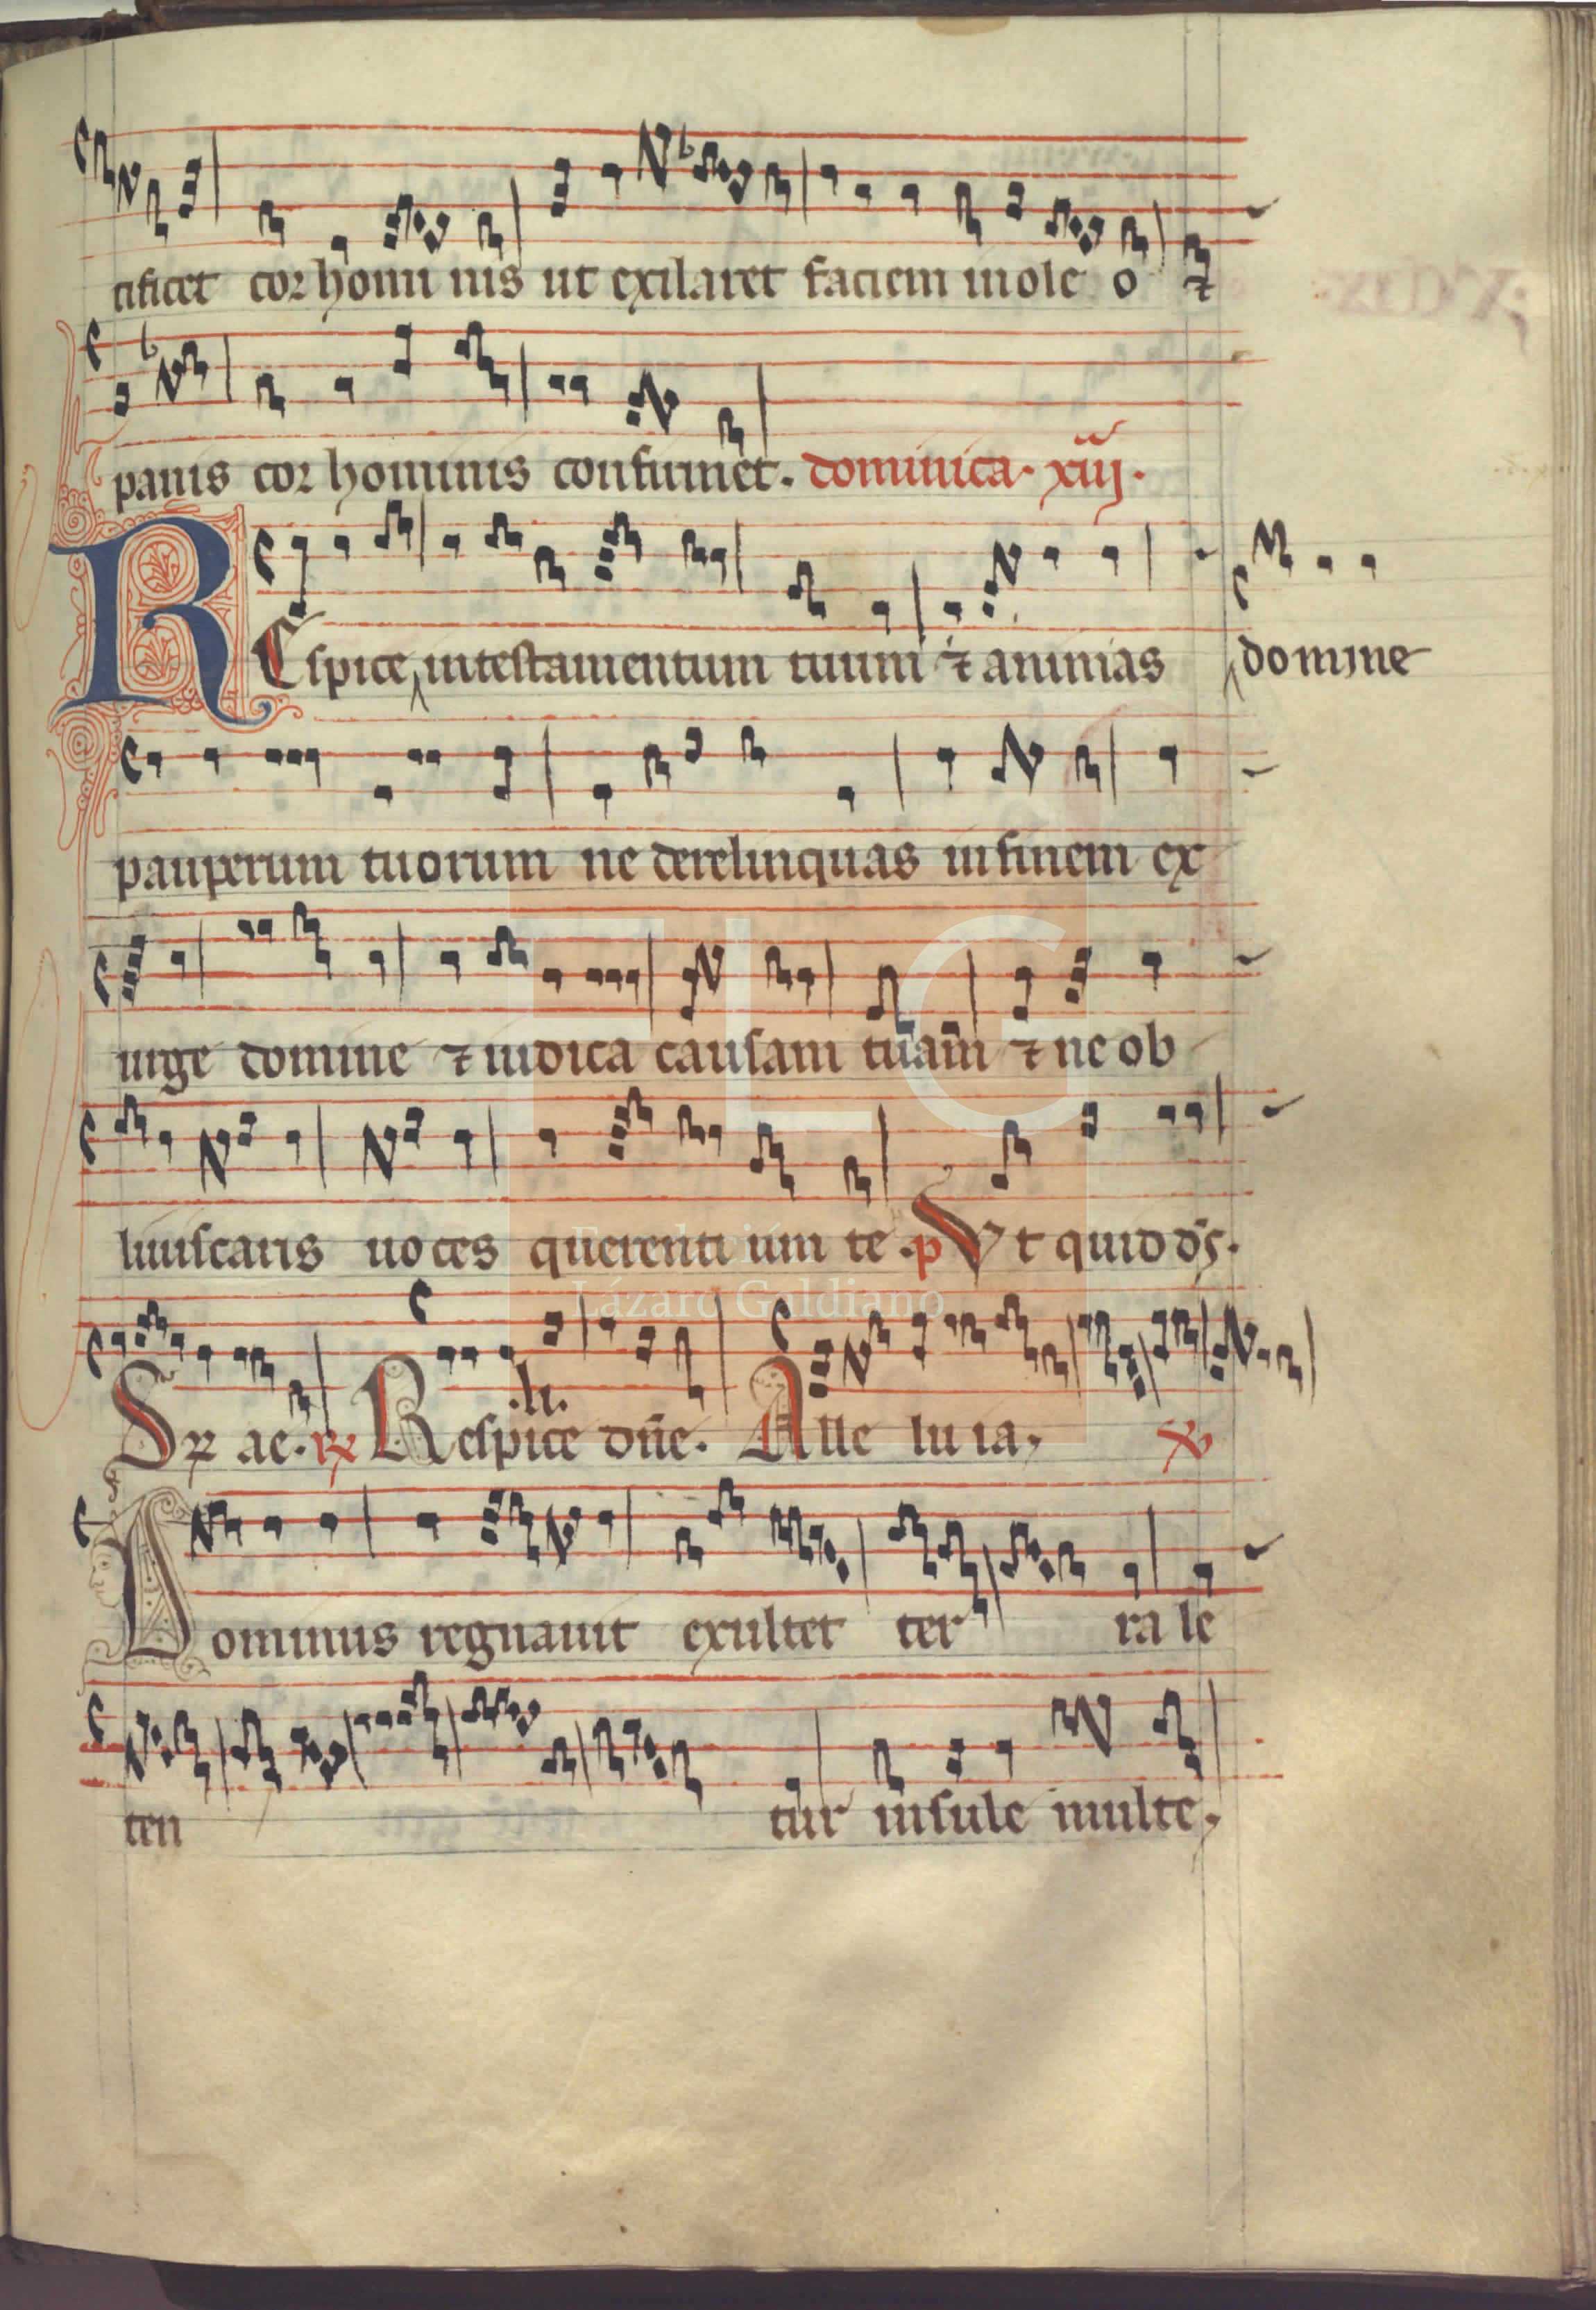 tificet cor homi nis ut exilaret faciem in ole o ⁊
panis cor hominis confirmet. dominica. xiiij.
REspice in testamentum tuum ⁊ animas
domine
pauperum tuorum ne derelinquas in finem ex
urge domine ⁊ iudica causam tuam ⁊ ne ob
liuiscaris uoces querenti um te. p Vt quid ds̄.
ae. Respice .li. dn̄e. Alle lu ia,
Dominus regnauit exultet ter ra le
ten tur insule multe,
FLG
Fundación
Lázaro Galdiano